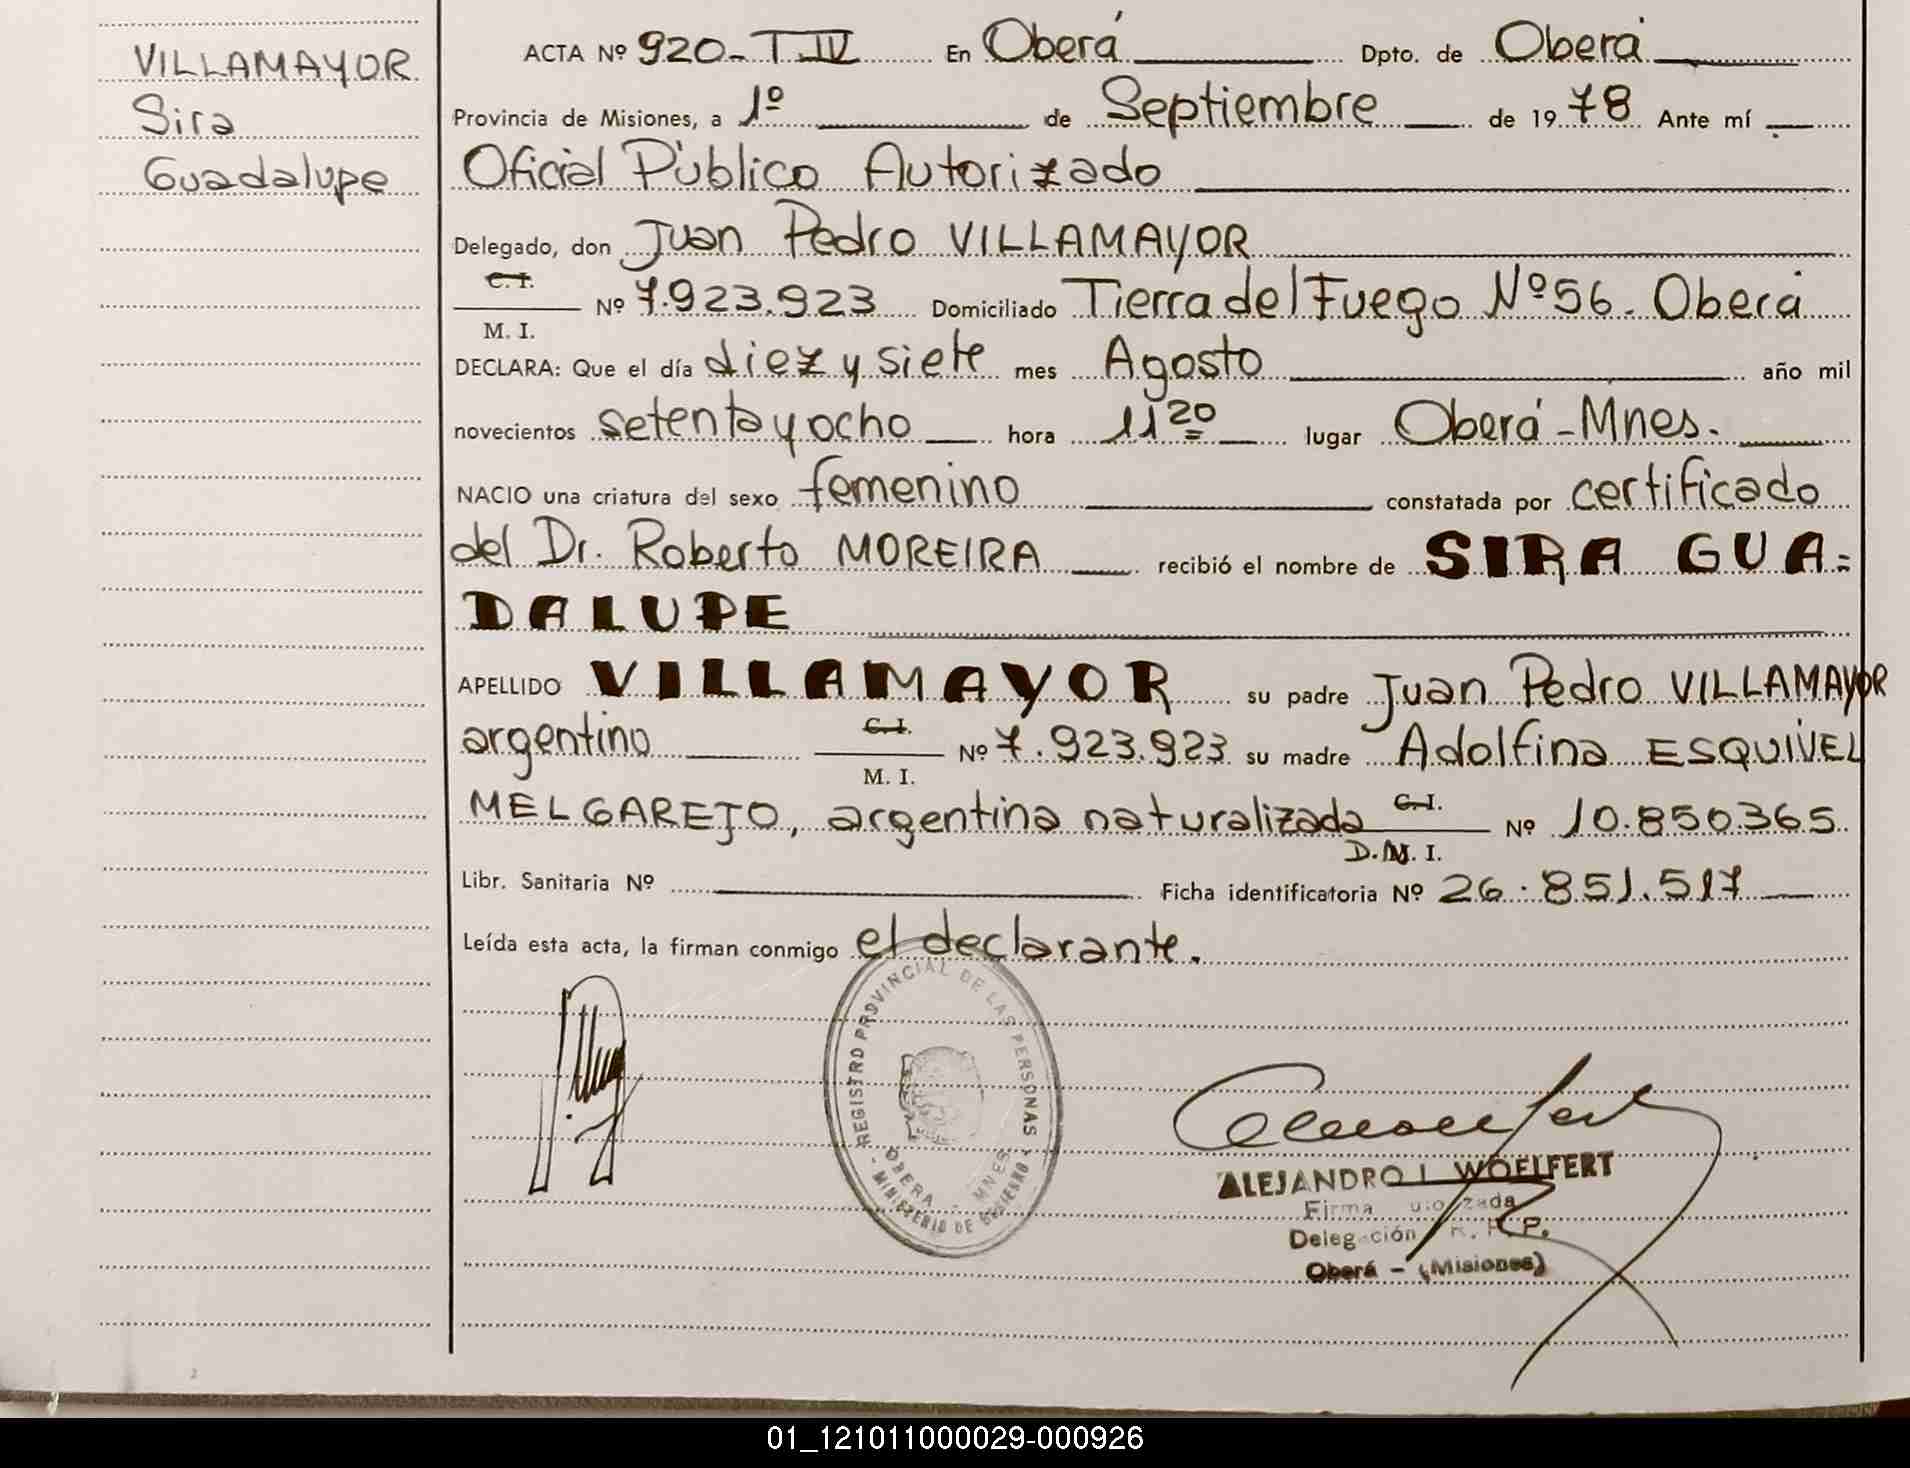 VILLAMAYOR
Sira
Guadalupe
ACTA Nº 920-T IV En Oberá Dpto. de Oberá
Provincia de Misiones, a 1º de Septiembre de 1978 Ante mí
Oficial Público Autorizado
Delegado, don Juan Pedro VILLAMAYOR
C. I.
M. I. Nº 7.923.923 Domiciliado Tierra del Fuego Nº 56. Oberá
DECLARA: Que el día diez y siete mes Agosto año mil
novecientos setenta y ocho hora 11 20 lugar Oberá-Mnes.
NACIO una criatura del sexo femenino constatada por certificado
del Dr. Roberto MOREIRA recibió el nombre de SIRA GUA=
DALUPE
APELLIDO VILLAMAYOR su padre Juan Pedro VILLAMAYOR
argentino C. I. Nº 7.923.923 su madre Adolfina ESQUIVEL
M. I.
MELGAREJO, argentina naturalizada C. I. Nº 10.850.365
D.M. I.
Libr. Sanitaria Nº Ficha identificatoria Nº 26.851.517
Leída esta acta, la firman conmigo el declarante.
REGISTRO PROVINCIAL DE LAS PERSONAS
OBERA - MNES
- MINISTERIO DE GOBIERNO -
ALEJANDRO L WOELFERT
Firma
Delegación R. P. P.
Oberá - (Misiones)
01_121011000029-000926